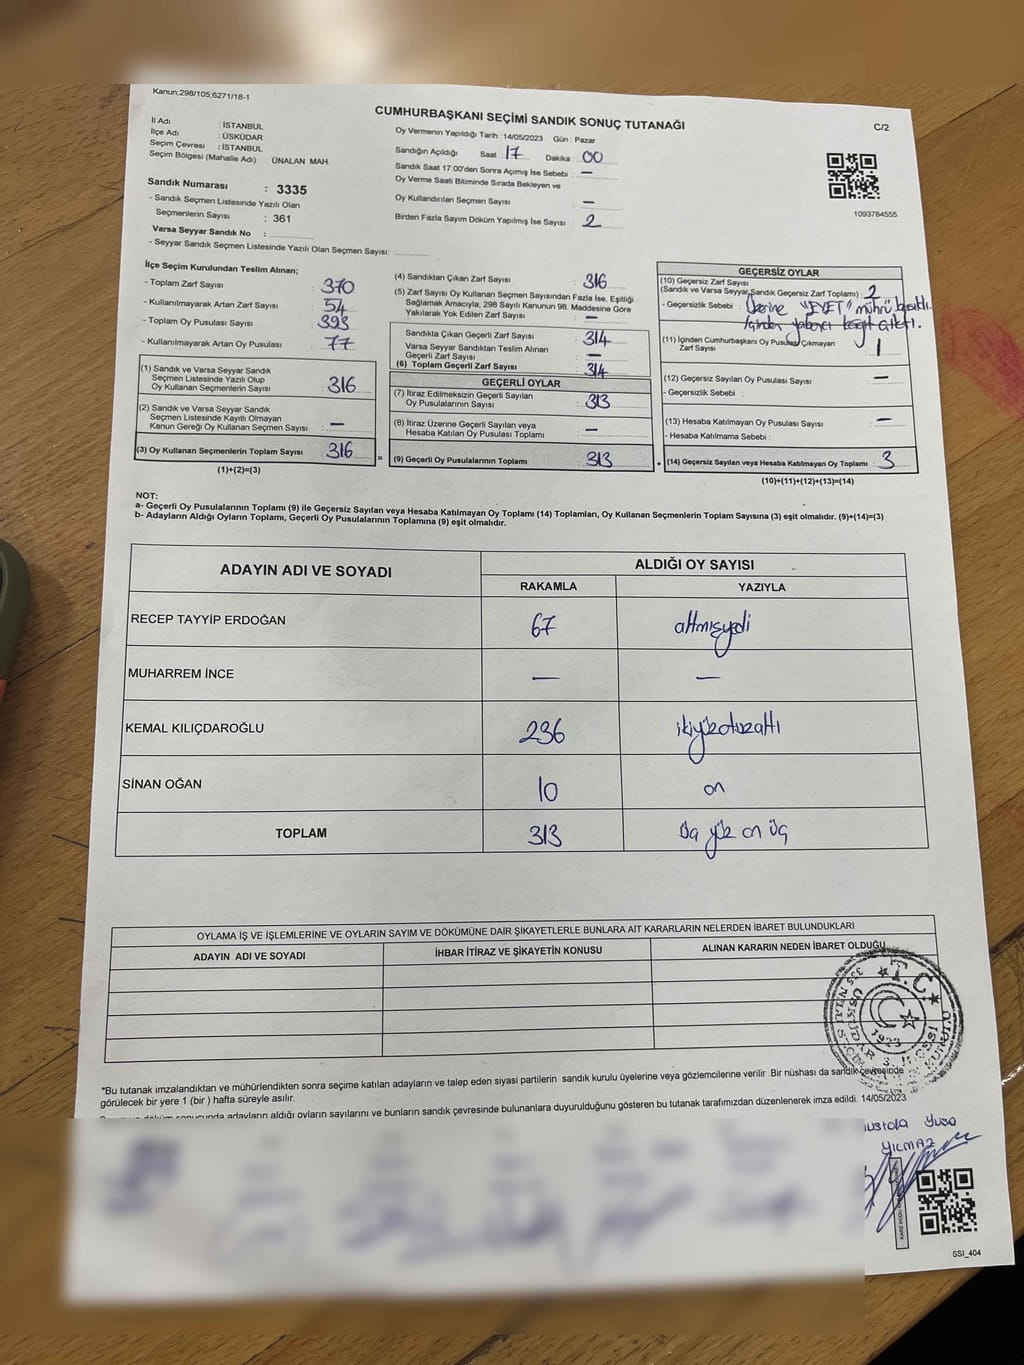 Kanun.298/105,6271/18-1
CUMHURBAŞKANI SEÇİMİ SANDIK SONUÇ TUTANAĞI
C/2
İl Adı : İSTANBUL
İlçe Adı : ÜSKÜDAR
Seçim Çevresi : İSTANBUL
Seçim Bölgesi (Mahalle Adı) : ÜNALAN MAH.
Sandık Numarası : 3335
- Sandık Seçmen Listesinde Yazılı Olan
Seçmenlerin Sayısı : 361
Varsa Seyyar Sandık No :
- Seyyar Sandık Seçmen Listesinde Yazılı Olan Seçmen Sayısı:
Oy Vermenin Yapıldığı Tarih : 14/05/2023 Gün : Pazar
Sandığın Açıldığı Saat : 17 Dakika : 00
Sandık Saat 17:00'den Sonra Açımış İse Sebebi : —
Oy Verme Saati Bitiminde Sırada Bekleyen ve
Oy Kullandırılan Seçmen Sayısı —
Birden Fazla Sayım Döküm Yapılmış İse Sayısı : 2
1093784555
İlçe Seçim Kurulundan Teslim Alınan;
- Toplam Zarf Sayısı : 370
- Kullanılmayarak Artan Zarf Sayısı : 54
- Toplam Oy Pusulası Sayısı : 393
- Kullanılmayarak Artan Oy Pusulası : 77
(1) Sandık ve Varsa Seyyar Sandık
Seçmen Listesinde Yazılı Olup
Oy Kullanan Seçmenlerin Sayısı : 316
(2) Sandık ve Varsa Seyyar Sandık
Seçmen Listesinde Kayıtlı Olmayan
Kanun Gereği Oy Kullanan Seçmen Sayısı : —
(3) Oy Kullanan Seçmenlerin Toplam Sayısı : 316
(1)+(2)=(3)
(4) Sandıktan Çıkan Zarf Sayısı : 316
(5) Zarf Sayısı Oy Kullanan Seçmen Sayısından Fazla İse, Eşitliği
Sağlamak Amacıyla, 298 Sayılı Kanunun 98. Maddesine Göre
Yakılarak Yok Edilen Zarf Sayısı : —
Sandıkta Çıkan Geçerli Zarf Sayısı : 314
Varsa Seyyar Sandıktan Teslim Alınan
Geçerli Zarf Sayısı : —
(6) Toplam Geçerli Zarf Sayısı : 314
GEÇERLİ OYLAR
(7) İtiraz Edilmeksizin Geçerli Sayılan
Oy Pusulalarının Sayısı : 313
(8) İtiraz Üzerine Geçerli Sayılan veya
Hesaba Katılan Oy Pusulası Toplamı : —
= (9) Geçerli Oy Pusulalarının Toplamı : 313
GEÇERSİZ OYLAR
(10) Geçersiz Zarf Sayısı
(Sandık ve Varsa Seyyar Sandık Geçersiz Zarf Toplamı) : 2
- Geçersizlik Sebebi : Üzerine "EVET" mührü basıldı.
İçinden yabancı kağıt çıktı.
(11) İçinden Cumhurbaşkanı Oy Pusulası Çıkmayan
Zarf Sayısı : 1
(12) Geçersiz Sayılan Oy Pusulası Sayısı : —
- Geçersizlik Sebebi :
(13) Hesaba Katılmayan Oy Pusulası Sayısı : —
- Hesaba Katılmama Sebebi :
+ (14) Geçersiz Sayılan veya Hesaba Katılmayan Oy Toplamı : 3
(10)+(11)+(12)+(13)=(14)
NOT:
a- Geçerli Oy Pusulalarının Toplamı (9) ile Geçersiz Sayılan veya Hesaba Katılmayan Oy Toplamı (14) Toplamları, Oy Kullanan Seçmenlerin Toplam Sayısına (3) eşit olmalıdır. (9)+(14)=(3)
b- Adayların Aldığı Oyların Toplamı, Geçerli Oy Pusulalarının Toplamına (9) eşit olmalıdır.
ADAYIN ADI VE SOYADI
ALDIĞI OY SAYISI
RAKAMLA YAZIYLA
RECEP TAYYİP ERDOĞAN 67 altmışyedi
MUHARREM İNCE — —
KEMAL KILIÇDAROĞLU 236 ikiyüzotuzaltı
SİNAN OĞAN 10 on
TOPLAM 313 Üç yüz on üç
OYLAMA İŞ VE İŞLEMLERİNE VE OYLARIN SAYIM VE DÖKÜMÜNE DAİR ŞİKAYETLERLE BUNLARA AİT KARARLARIN NELERDEN İBARET BULUNDUKLARI
ADAYIN ADI VE SOYADI İHBAR İTİRAZ VE ŞİKAYETİN KONUSU ALINAN KARARIN NEDEN İBARET OLDUĞU
T.C.
1923
ÜSKÜDAR 3. İLÇESİ
*Bu tutanak imzalandıktan ve mühürlendikten sonra seçime katılan adayların ve talep eden siyasi partilerin sandık kurulu üyelerine veya gözlemcilerine verilir .Bir nüshası da sandık çevresinde
görülecek bir yere 1 (bir ) hafta süreyle asılır.
sonucunda adayların aldığı oyların sayılarını ve bunların sandık çevresinde bulunanlara duyurulduğunu gösteren bu tutanak tarafımızdan düzenlenerek imza edildi. 14/05/2023
YILMAZ
SSI_404